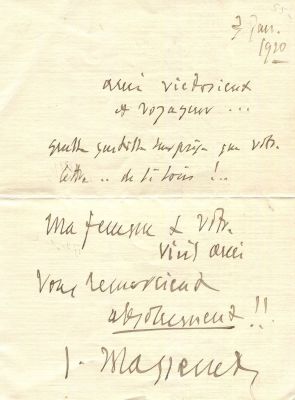 3 Jan.
1910
ami victorieux
et voyageur ...
quelle surprise que votre
lettre .. de si loin !..
Ma femme & votre
vieil ami
Vous remercient
absolument !!
J. Massenet